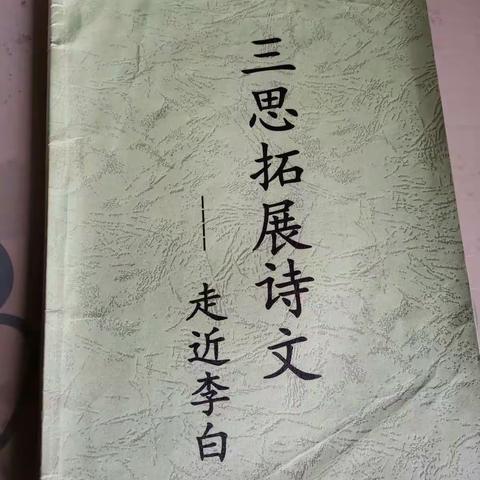 三思拓展诗文
——走近李白